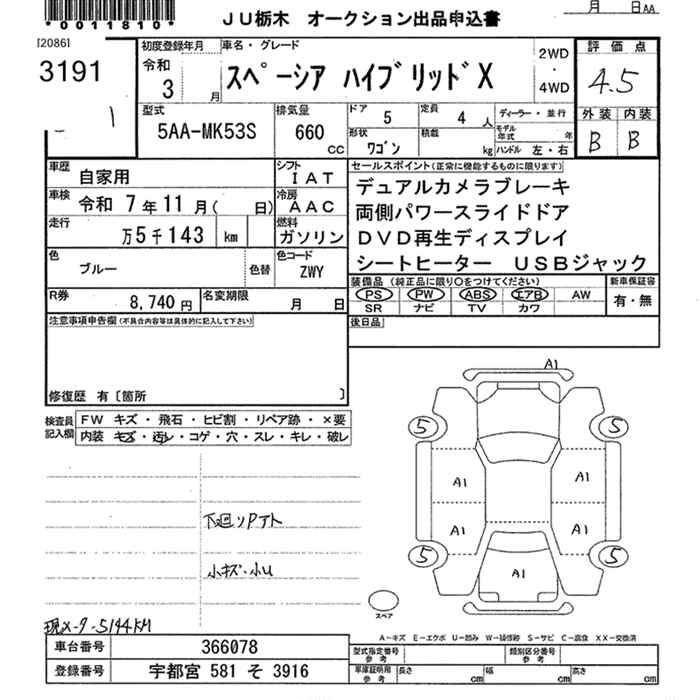 *0011810*
JU栃木 オークション出品申込書
月 日AA
[2086]
3191
1
初度登録年月
令和
3
月
車名・グレード
スペーシア ハイブリッドX
2WD
・
4WD
評価点
4.5
外装 内装
B B
型式
5AA-MK53S
排気量
660
CC
ドア
5
定員
4 人
形状
ワゴン
積載
kg
ディーラー・並行
モデル年式
年
ハンドル 左・右
車歴
自家用
シフト
IAT
車検
令和 7年11月( 日)
冷房
AAC
走行
万5千143 km
燃料
ガソリン
色
ブルー
色替
色コード
ZWY
R券
8,740 円
名変期限
月 日
セールスポイント(正常に機能するものに限ります)
デュアルカメラブレーキ
両側パワースライドドア
DVD再生ディスプレイ
シートヒーター USBジャック
装備品 (純正品に限り○をつけてください)
PS PW ABS エアB AW
SR ナビ TV カワ
新車保証書
有・無
後日品
注意事項申告欄(不具合内容等は具体的に記入して下さい)
修復歴 有〔箇所 〕
検査員
記入欄
FW キズ・飛石・ヒビ割・リペア跡・×要
内装 キズ・汚レ・コゲ・穴・スレ・キレ・破レ
下廻りPアト
小キズ・小U
現メーター5144KM
A1
5 5
A1 A1
A1 A1
5 5
A1
スペア
A-キズ E-エクボ U-凹み W-補修跡 S-サビ C-腐食 XX-交換済
車台番号
366078
登録番号
宇都宮 581 そ 3916
型式指定番号
参考
類別区分番号
参考
車庫証明用
参考
長さ cm
幅 cm
高さ cm